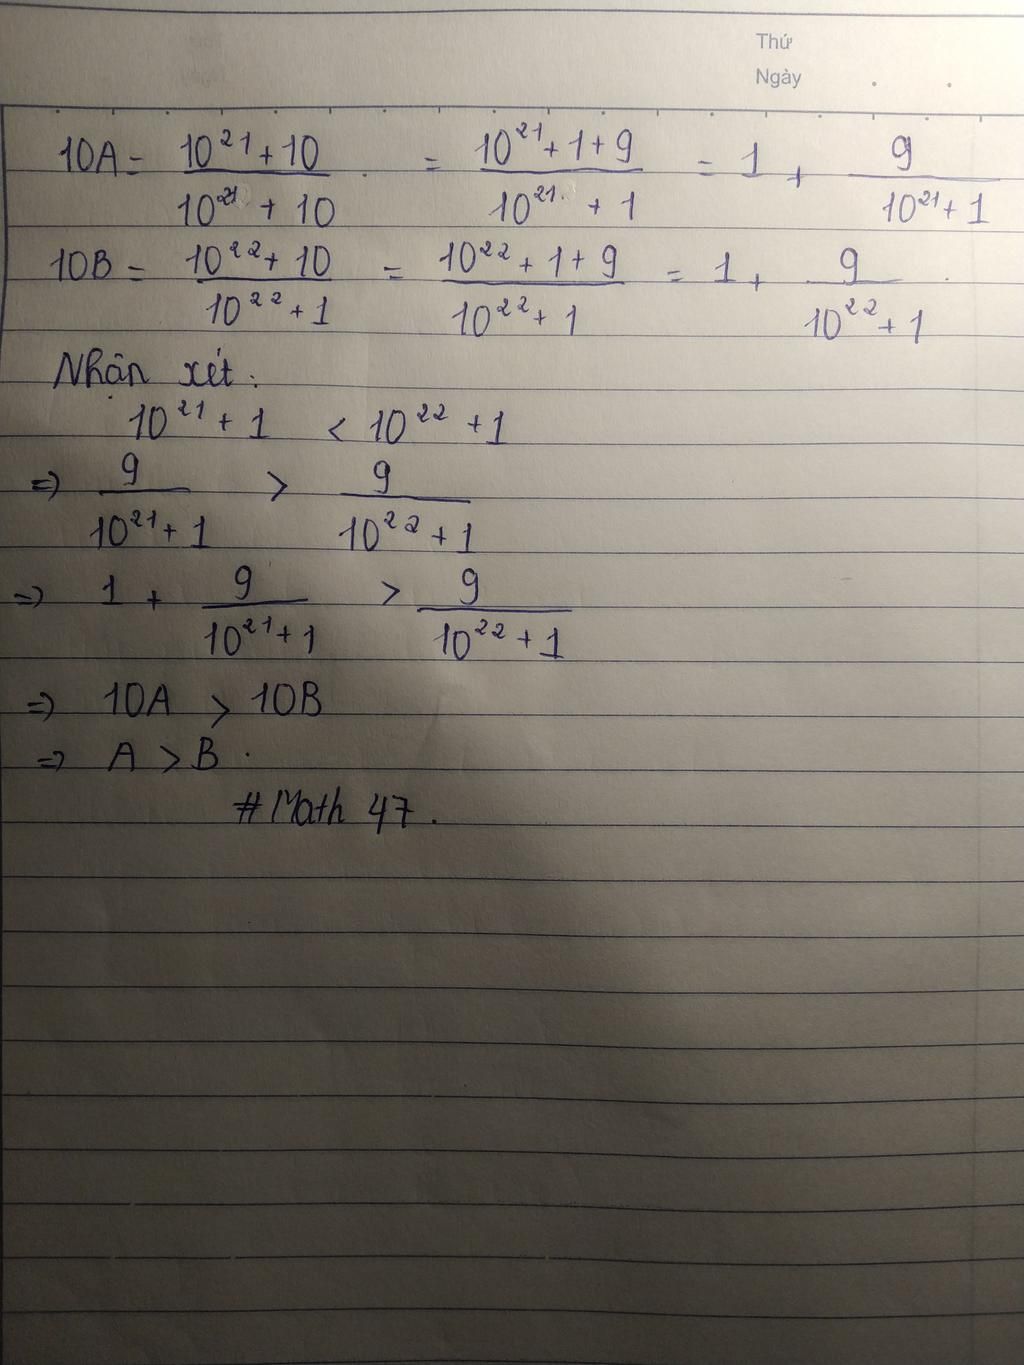 Thứ
Ngày
10A = (10²¹ + 10)/(10²¹ + 10) = (10²¹ + 1 + 9)/(10²¹ + 1) = 1 + 9/(10²¹ + 1)
10B = (10²² + 10)/(10²² + 1) = (10²² + 1 + 9)/(10²² + 1) = 1 + 9/(10²² + 1)
Nhận xét:
10²¹ + 1 < 10²² + 1
=> 9/(10²¹ + 1) > 9/(10²² + 1)
=> 1 + 9/(10²¹ + 1) > 9/(10²² + 1)
=> 10A > 10B
=> A > B.
# Math 47.